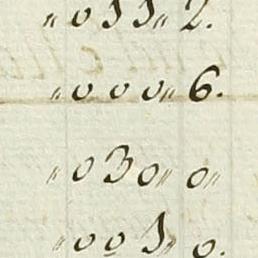 „011„2.
„000„6.
„030„0„
„001„0.